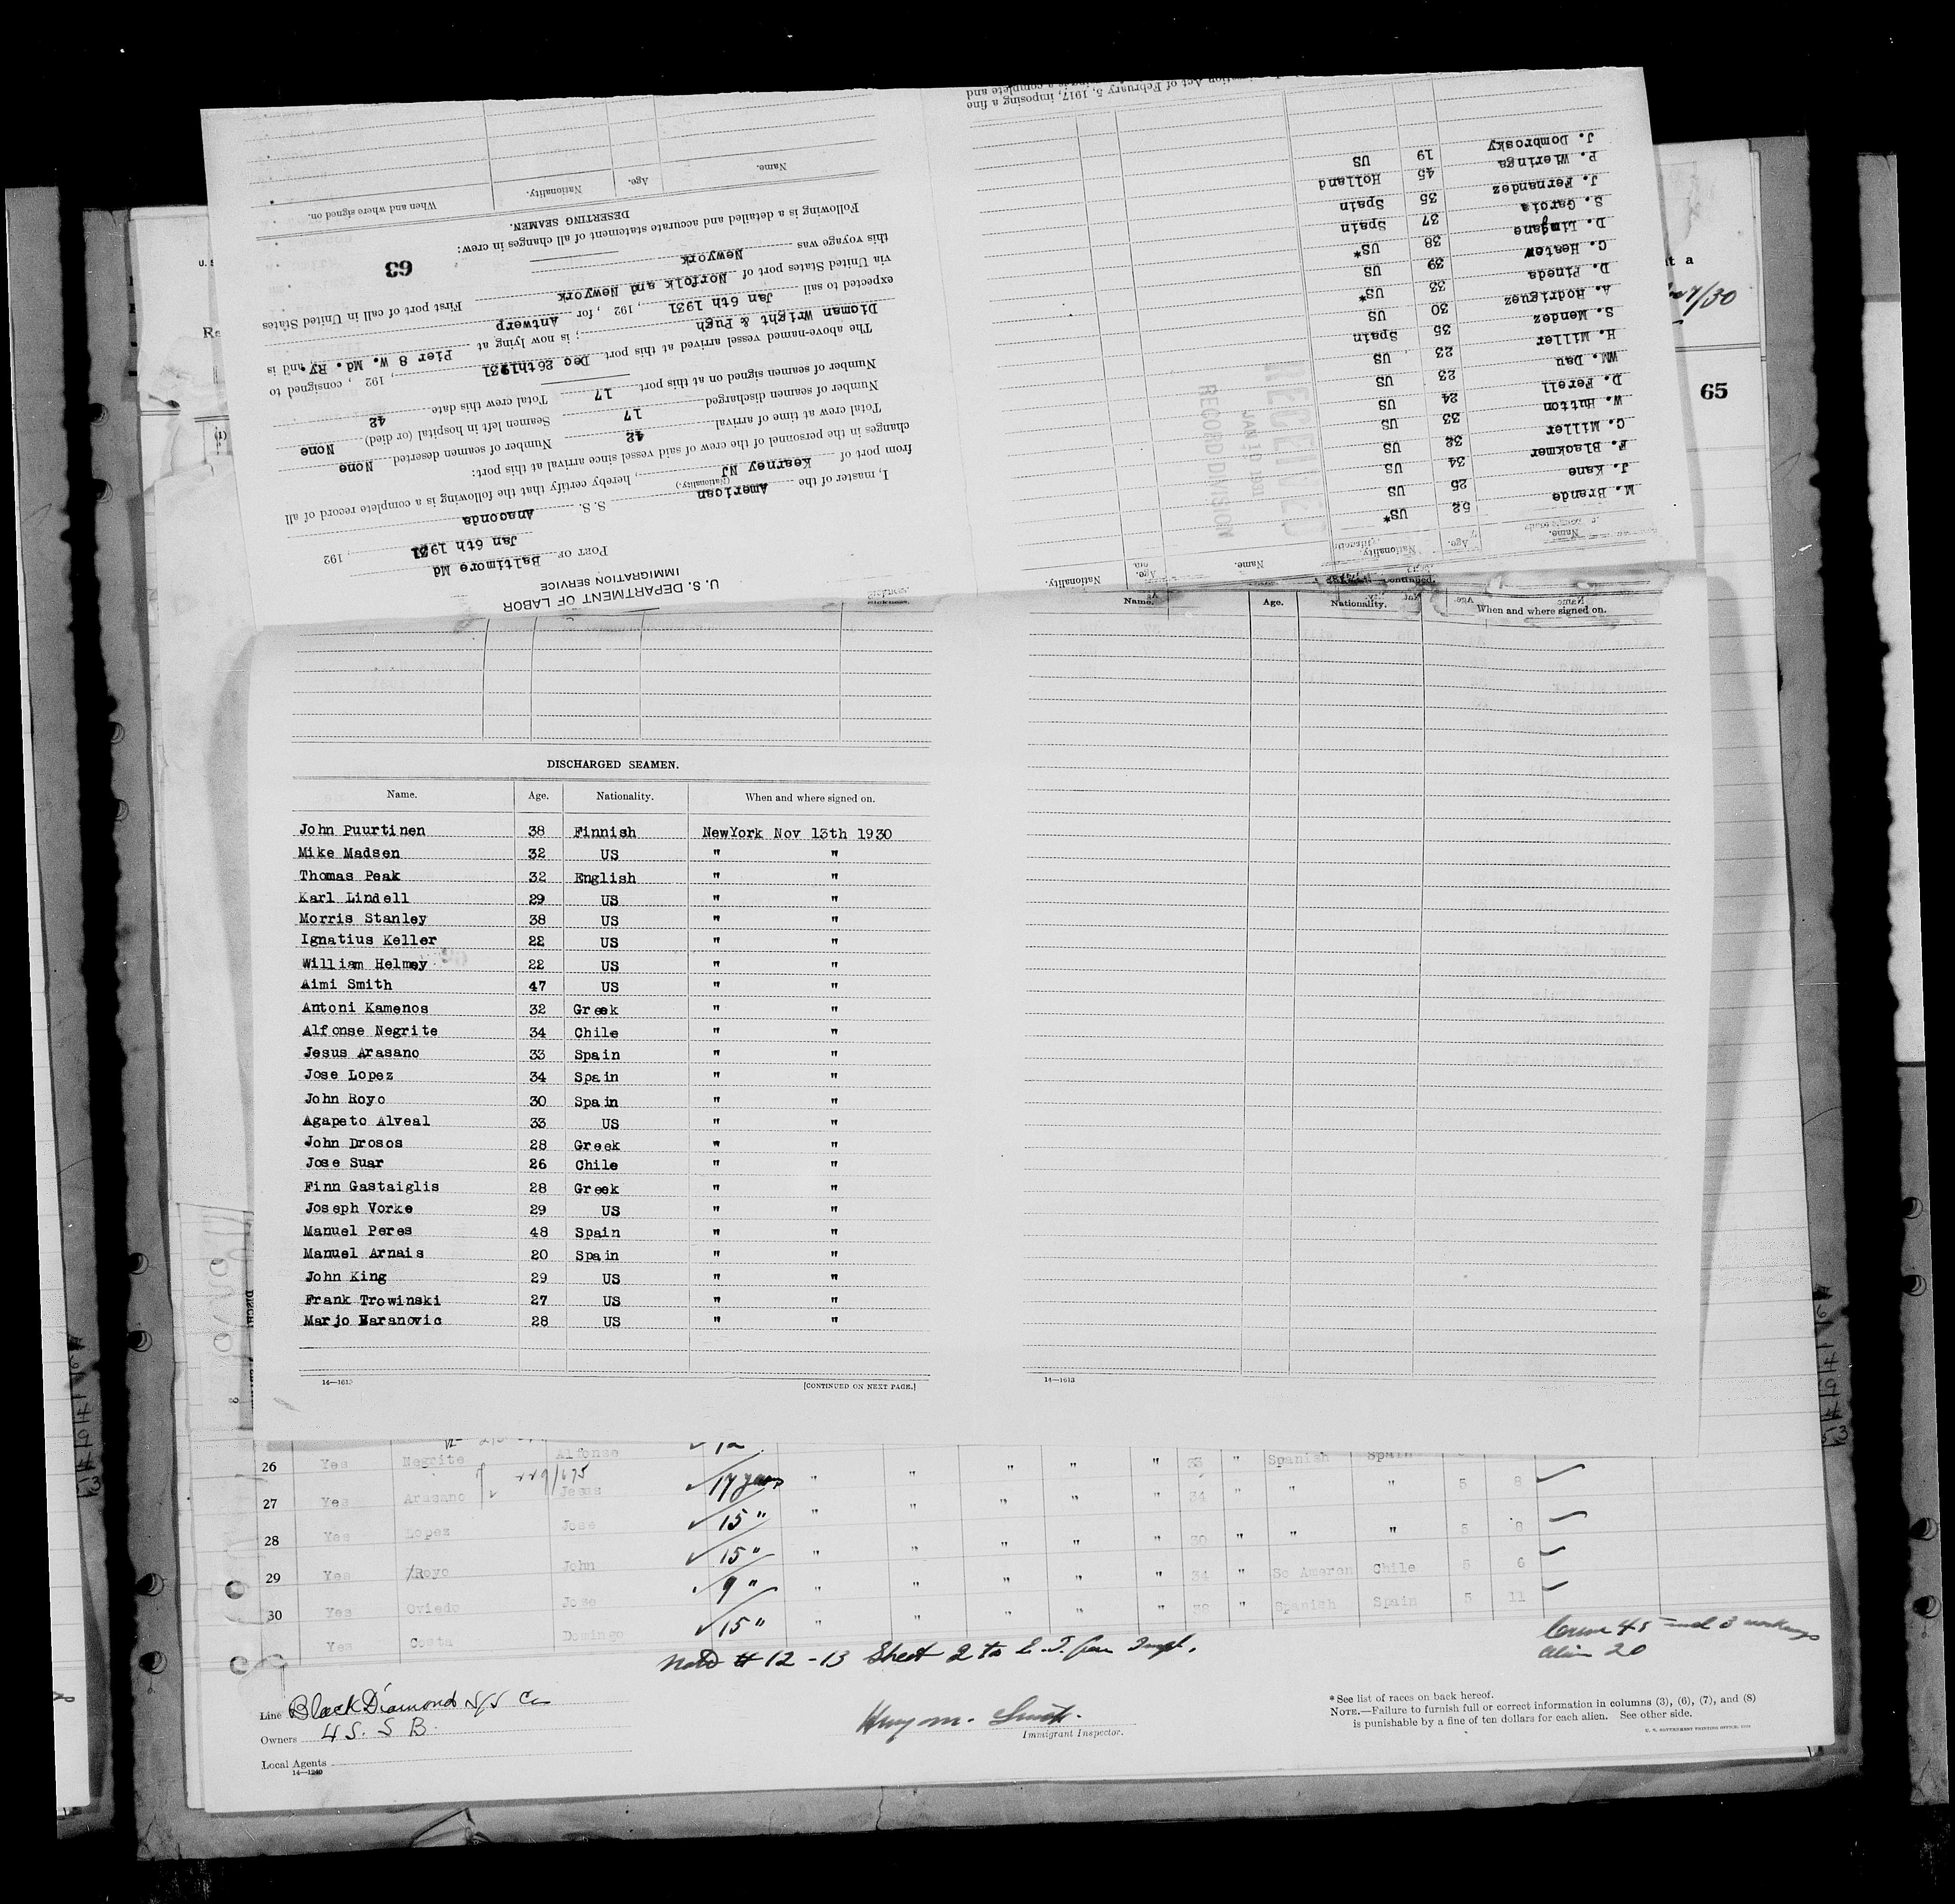 U. S. DEPARTMENT OF LABOR
IMMIGRATION SERVICE
PORT OF Baltimore Md
Jan 6th 1931, 192
I, master of the American S. S. Anaconda
(Nationality.)
from port of Kearney NJ, hereby certify that the following is a complete record of all
changes in the personnel of the crew of said vessel since arrival at this port:
Total crew at time of arrival 42 Number of seamen deserted None
Number of seamen discharged 17 Seamen left in hospital (or died) None
Number of seamen signed on at this port 17 Total crew this date 42
The above-named vessel arrived at this port Dec 26th1931, 192 , consigned to
Dioman Wright & Pugh ; is now lying at Pier 8 W. Md. Ry. and is
expected to sail Jan 6th 1931, 192 , for Antwerp
via United States port of Norfolk and Newyork First port of call in United States
this voyage was Newyork
Following is a detailed and accurate statement of all changes in crew:
63
DESERTING SEAMEN.
Name. Age. Nationality. When and where signed on.
Name. Age. Nationality.
M. Brende 52 US*
J. Kane 25 US
F. Blackmer 34 US
C. Miller 32 US
W. Hutton 33 US
D. Ferell 24 US
WM. Dau 23 US
H. Miller 23 US
S. Mendez 35 Spain
A. Rodriguez 30 US
D. Pineda 33 US*
C. Heaten 39 US
D. Limgane 38 US*
S. Garcia 37 Spain
J. Fernandez 35 Spain
P. Wieringa 45 Holland
J. Dombrosky 19 US
RECEIVED
JAN 10 1931
RECORD DIVISION
Act of February 5, 1917, imposing a fine
65
Name. Age. Nationality. When and where signed on.
DISCHARGED SEAMEN.
Name. Age. Nationality. When and where signed on.
John Puurtinen 38 Finnish NewYork Nov 13th 1930
Mike Madsen 32 US " "
Thomas Peak 32 English " "
Karl Lindell 29 US " "
Morris Stanley 38 US " "
Ignatius Keller 22 US " "
William Helmey 22 US " "
Aimi Smith 47 US " "
Antoni Kamenos 32 Greek " "
Alfonse Negrite 34 Chile " "
Jesus Arasano 33 Spain " "
Jose Lopez 34 Spain " "
John Royo 30 Spain " "
Agapeto Alveal 33 US " "
John Drosos 28 Greek " "
Jose Suar 26 Chile " "
Finn Gastaiglis 28 Greek " "
Joseph Vorke 29 US " "
Manuel Peres 48 Spain " "
Manuel Arnais 20 Spain " "
John King 29 US " "
Frank Trowinski 27 US " "
Marjo Baranovic 28 US " "
14—1613 [CONTINUED ON NEXT PAGE.]
14—1613
26 Yes Negrite Alfonse 12
27 Yes Arasano Jesus 17 years " " " " " 33 " Spanish Spain
28 Yes Lopez Jose 15 " " " " " " 34 " " " 5 8
29 Yes Royo John 15 " " " " " " 30 " " " 5 8
30 Yes Oviedo Jose 9 " " " " " " 34 " So Ameron Chile 5 6
Yes Costa Domingo 15 " " " " " " 38 " Spanish Spain 5 11
Note # 12 - 13 Sheet 2 to E. I. for Inspt.
Crew 45 and 3 workaways
Alien 20
Line Black Diamond S/S Co
Owners U S. S B.
Local Agents
14—1240
Henry M. Smith.
Immigrant Inspector.
* See list of races on back hereof.
NOTE.—Failure to furnish full or correct information in columns (3), (6), (7), and (8)
is punishable by a fine of ten dollars for each alien. See other side.